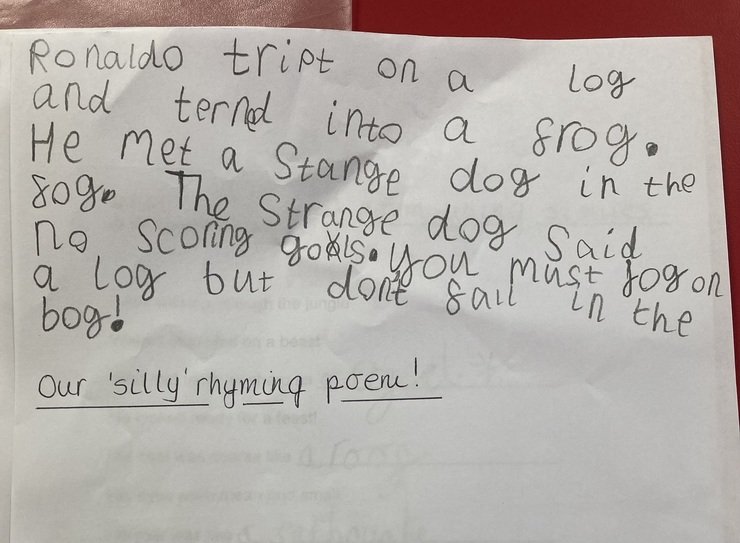 Ronaldo tript on a log
and terned into a frog.
He met a Stange dog in the
fog. The Strange dog said
no scoring goals. you must jog on
a log but dont fall in the
bog!
Our 'silly' rhyming poem!